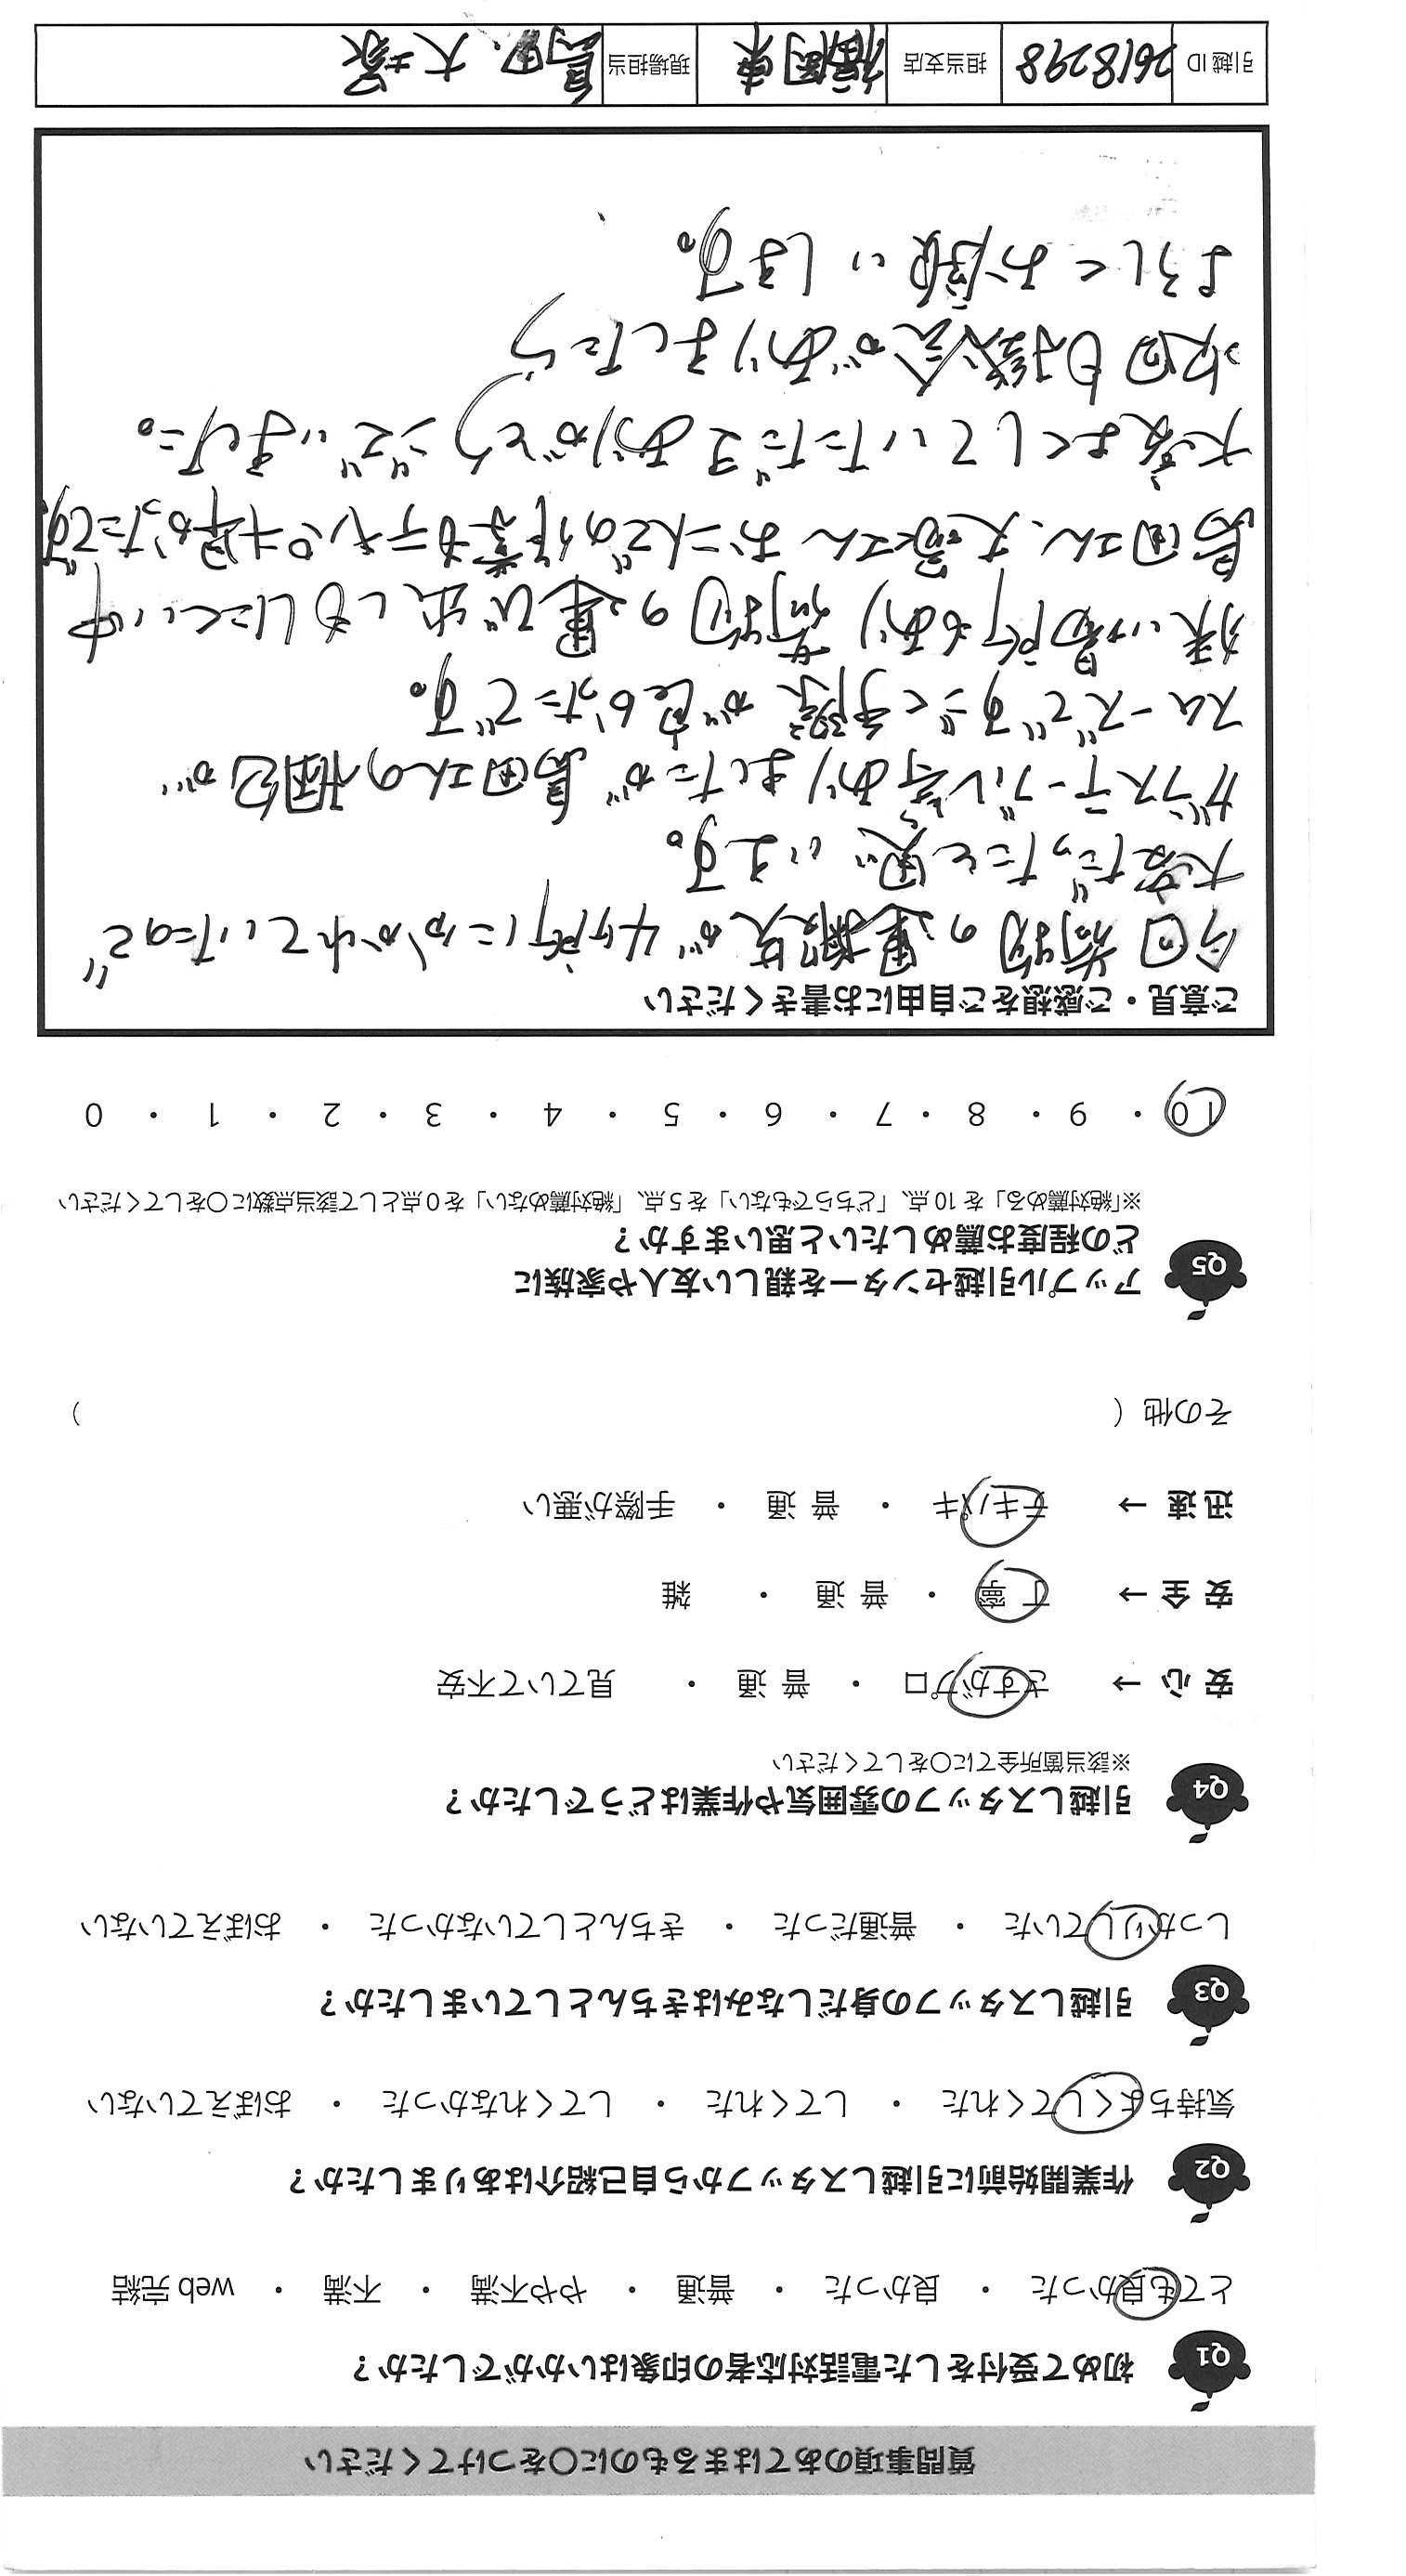 質問事項のあてはまるものに○をつけてください
Q1 初めて受付をした電話対応者の印象はいかがでしたか？
とても良かった ・ 良かった ・ 普通 ・ やや不満 ・ 不満 ・ web 完結
Q2 作業開始前に引越しスタッフから自己紹介はありましたか？
気持ちよくしてくれた ・ してくれた ・ してくれなかった ・ おぼえていない
Q3 引越しスタッフの身だしなみはきちんとしていましたか？
しっかりしていた ・ 普通だった ・ きちんとしていなかった ・ おぼえていない
Q4 引越しスタッフの雰囲気や作業はどうでしたか？
※該当箇所全てに○をしてください
安心 → さすがプロ ・ 普通 ・ 見ていて不安
安全 → 丁寧 ・ 普通 ・ 雑
迅速 → テキパキ ・ 普通 ・ 手際が悪い
その他（ ）
Q5 アップル引越センターを親しい友人や家族に
どの程度お薦めしたいと思いますか？
※「絶対薦める」を 10 点、「どちらでもない」を 5 点、「絶対薦めない」を 0 点として該当点数に○をしてください
10 ・ 9 ・ 8 ・ 7 ・ 6 ・ 5 ・ 4 ・ 3 ・ 2 ・ 1 ・ 0
ご意見・ご感想をご自由にお書きください
今回荷物の運搬先が4ヶ所にわかれていたので
大変だったと思います。
ガラステーブル等ありましたが島田さんの梱包が
スムーズですごく手際が良かったです。
狭い場所もあり荷物の運び出しもしにくい中
島田さん、大塚さんお二人での作業もテキパキ早かったです。
大変よくしていただきありがとうございました。
次回も機会がありましたら
よろしくお願いします。
引越 ID 2618298 担当支店 福岡東 現場担当 島田、大塚